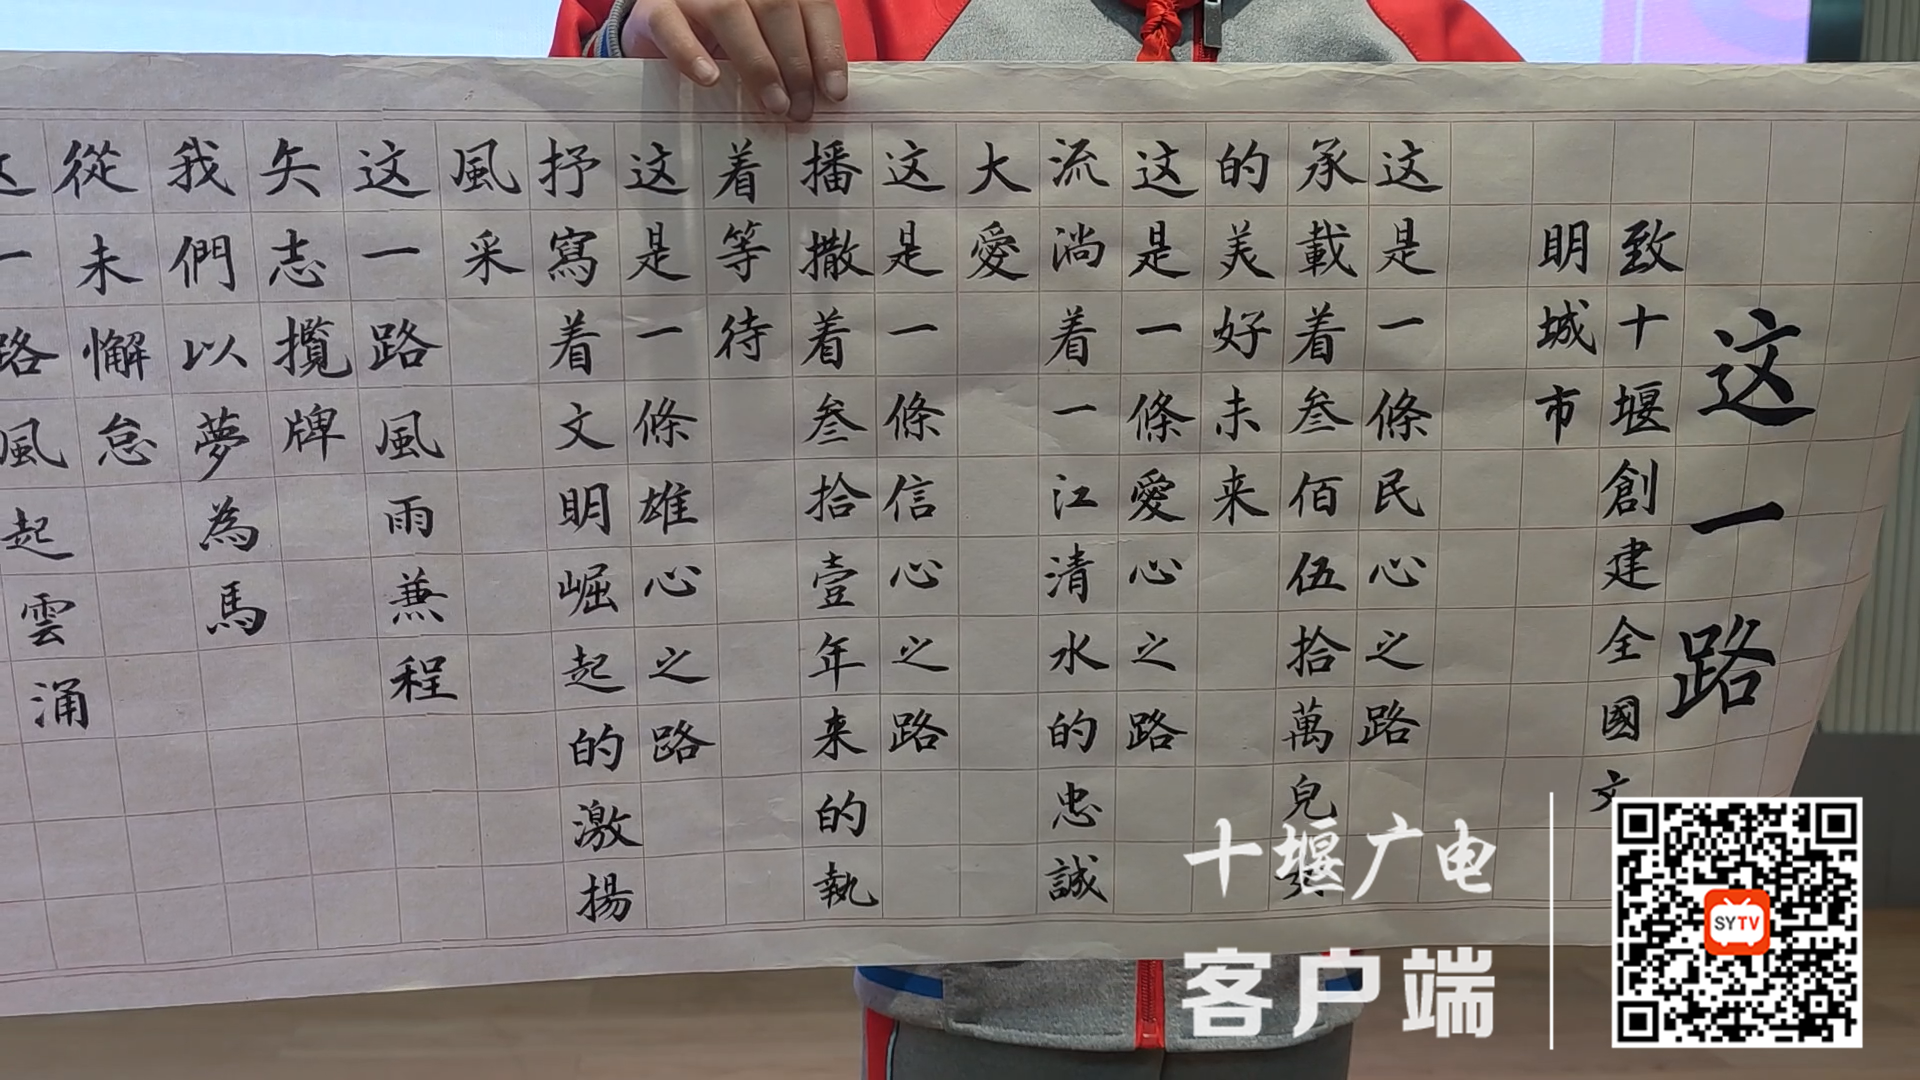 这一路
致十堰創建全國文
明城市
这是一條民心之路
承載着叁佰伍拾萬兒
的美好未来
这是一條愛心之路
流淌着一江清水的忠誠
大愛
这是一條信心之路
播撒着叁拾壹年来的執
着等待
这是一條雄心之路
抒寫着文明崛起的激揚
風采
这一路風雨兼程
矢志攬牌
我們以夢為馬
從未懈怠
这一路風起雲涌
十堰广电
客户端
SYTV